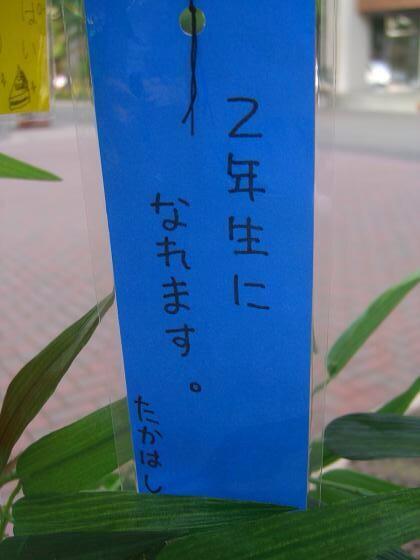 2年生に
なれます。
たかはし